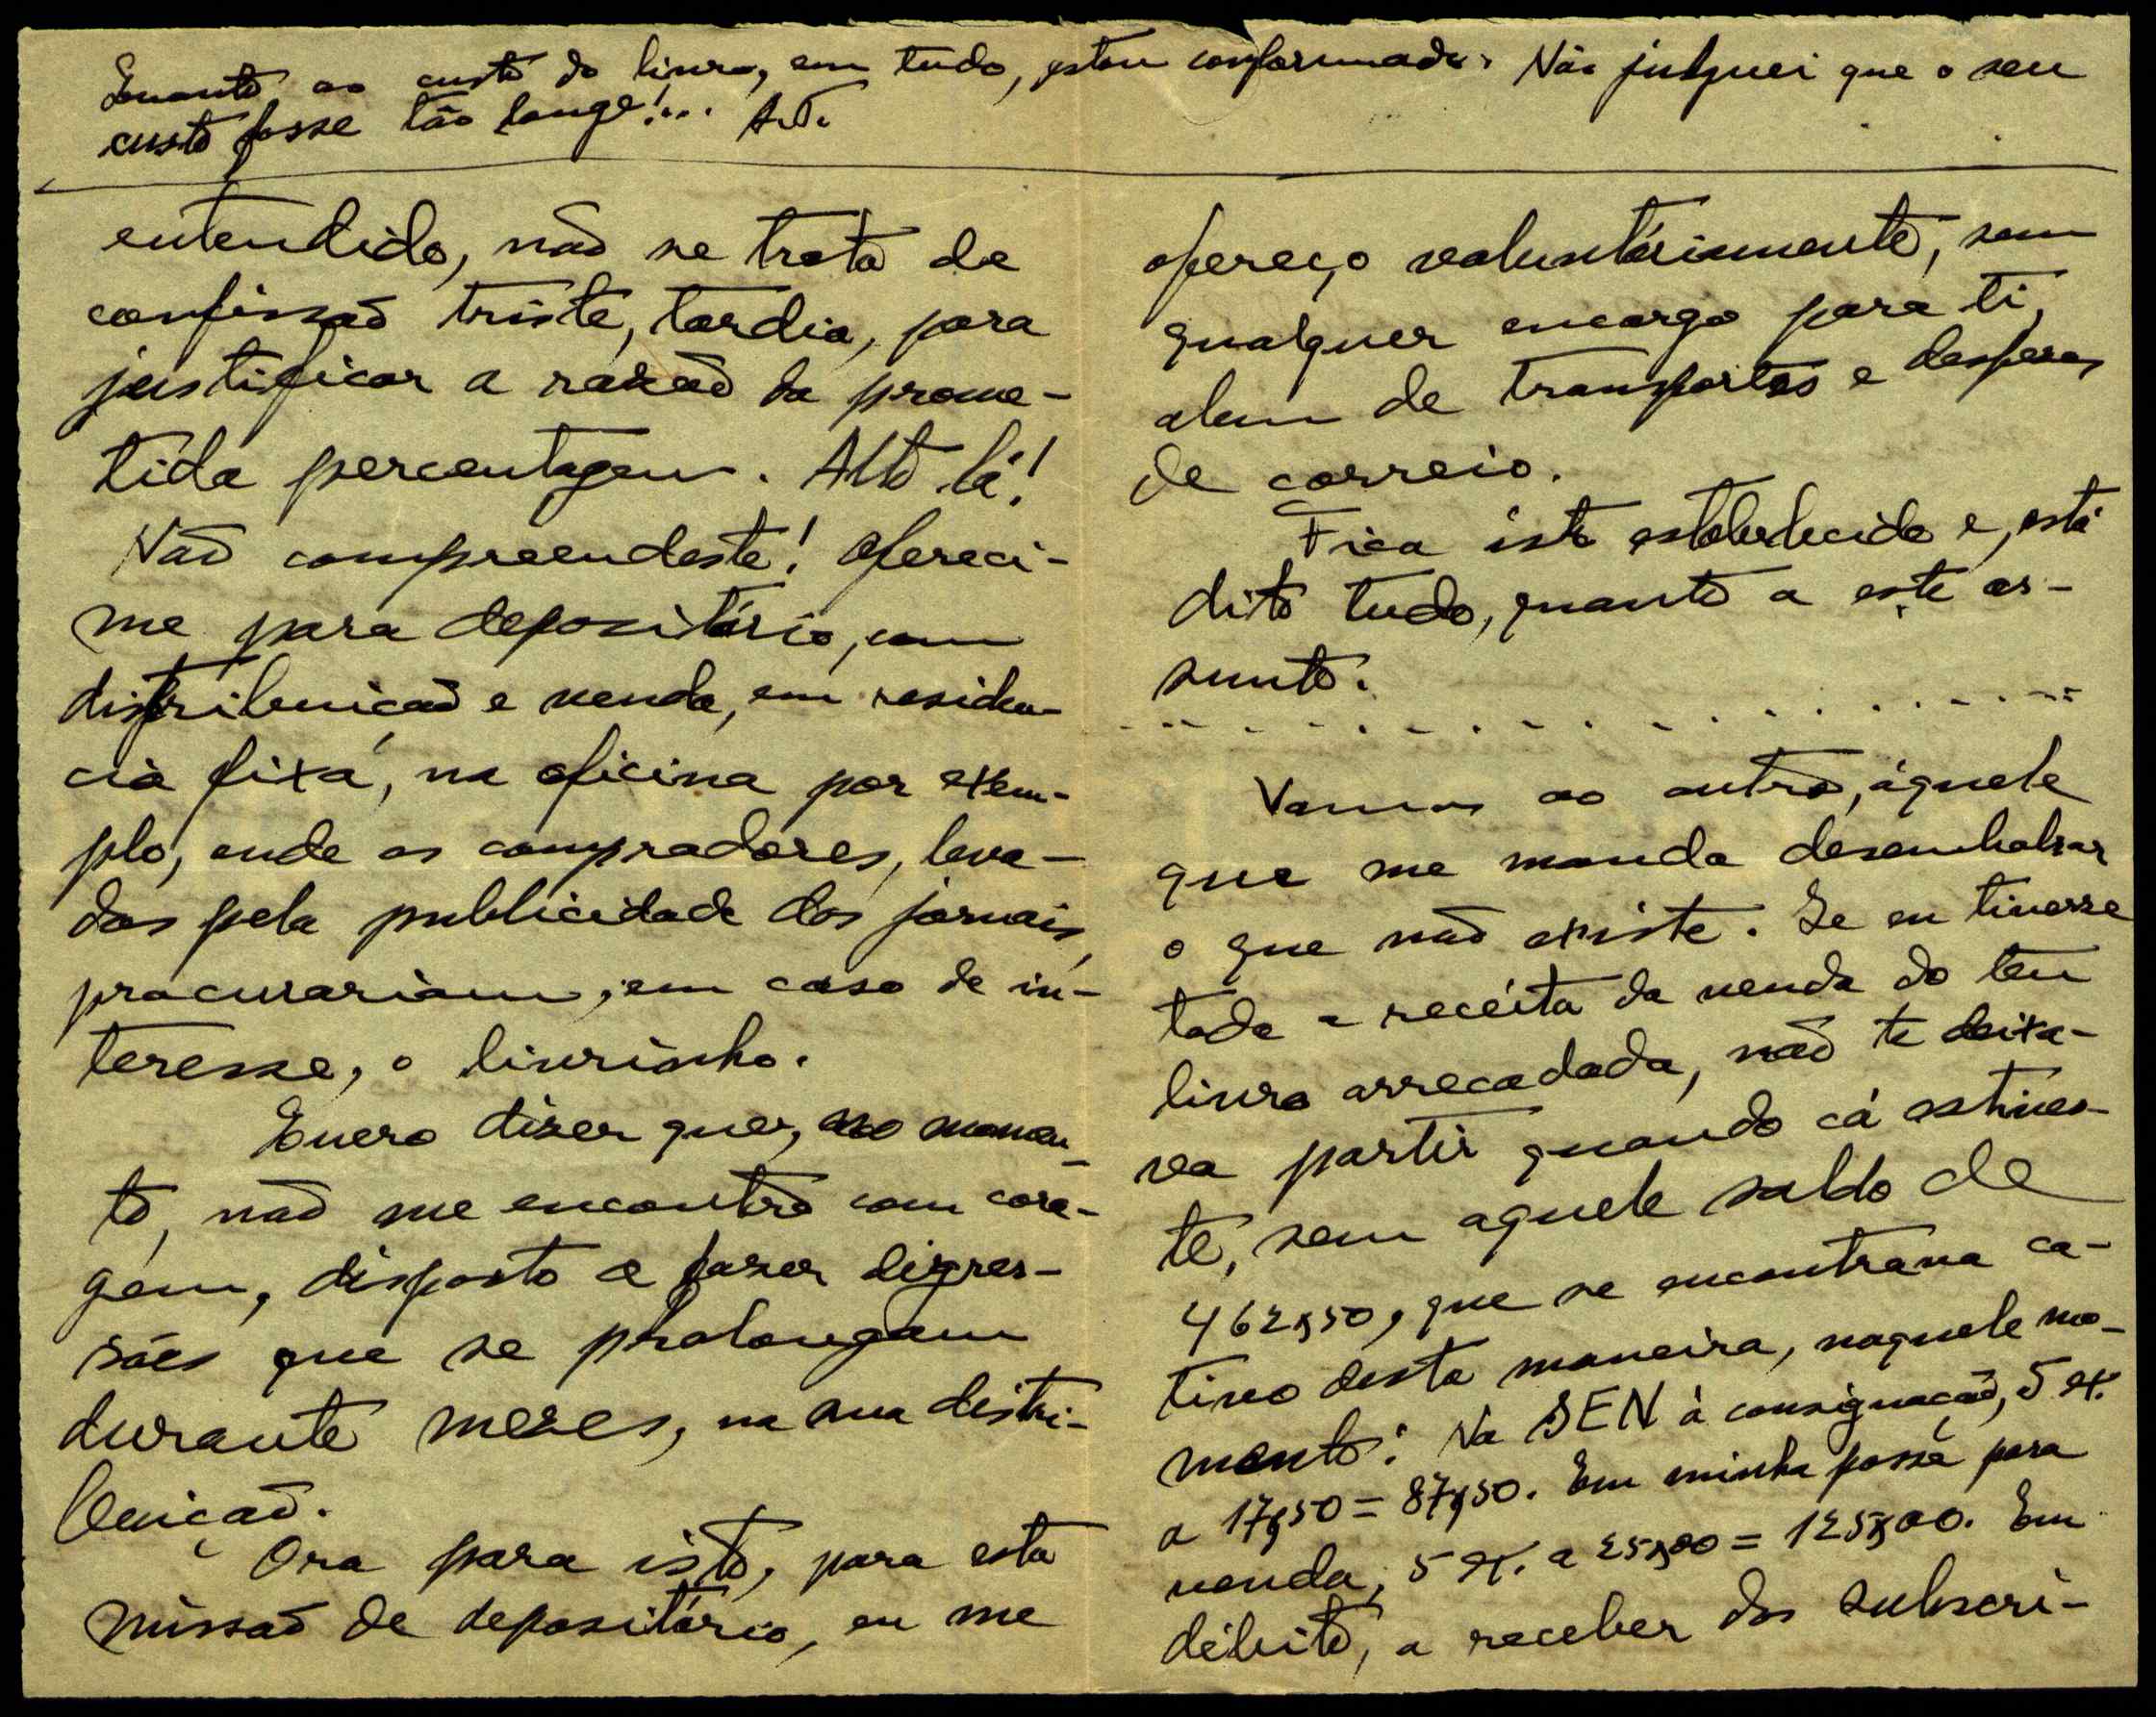 Quanto ao custo do livro, em tudo, estou conformado. Não julguei que o seu
custo fosse tão longe!... A.T.
entendido, não se trata de
confissão triste, tardia, para
justificar a razão da prome-
tida percentagem. Alto lá!
Não compreendeste! Ofereci-
me para depozitário, com
distribuição e venda, em residen-
cia fixa, na oficina por exem-
plo, onde os compradores, leva-
dos pela publicidade dos jornais,
procurariam, em caso de in-
teresse, o livrinho.
Quero dizer que, no momen-
to, não me encontro com cora-
gem, disposto a fazer digres-
sões que se prolongam
durante mezes, na sua distri-
buição.
Ora para isto, para esta
missão de depositário, eu me
ofereço voluntáriamente, sem
qualquer encargo para ti,
alem de transportes e despezas
de correio.
Fica isto estabelecido e, está
dito tudo, quanto a este as-
sunto.
. . . . . . . . . . . . . . . . . .
Vamos ao outro, áquele
que me manda desembolsar
o que não existe. Se eu tivesse
toda a receita da venda do teu
livro arrecadada, não te deixa-
va partir quando cá estives-
te, sem aquele saldo de
462$50, que se encontrava ca-
tivo desta maneira, naquele mo-
mento: Na SEN à consignação, 5 ex.
a 17$50 = 87$50. Em minha posse para
venda, 5 ex. a 25$00 = 125$00. Em
débito, a receber dos subscri-